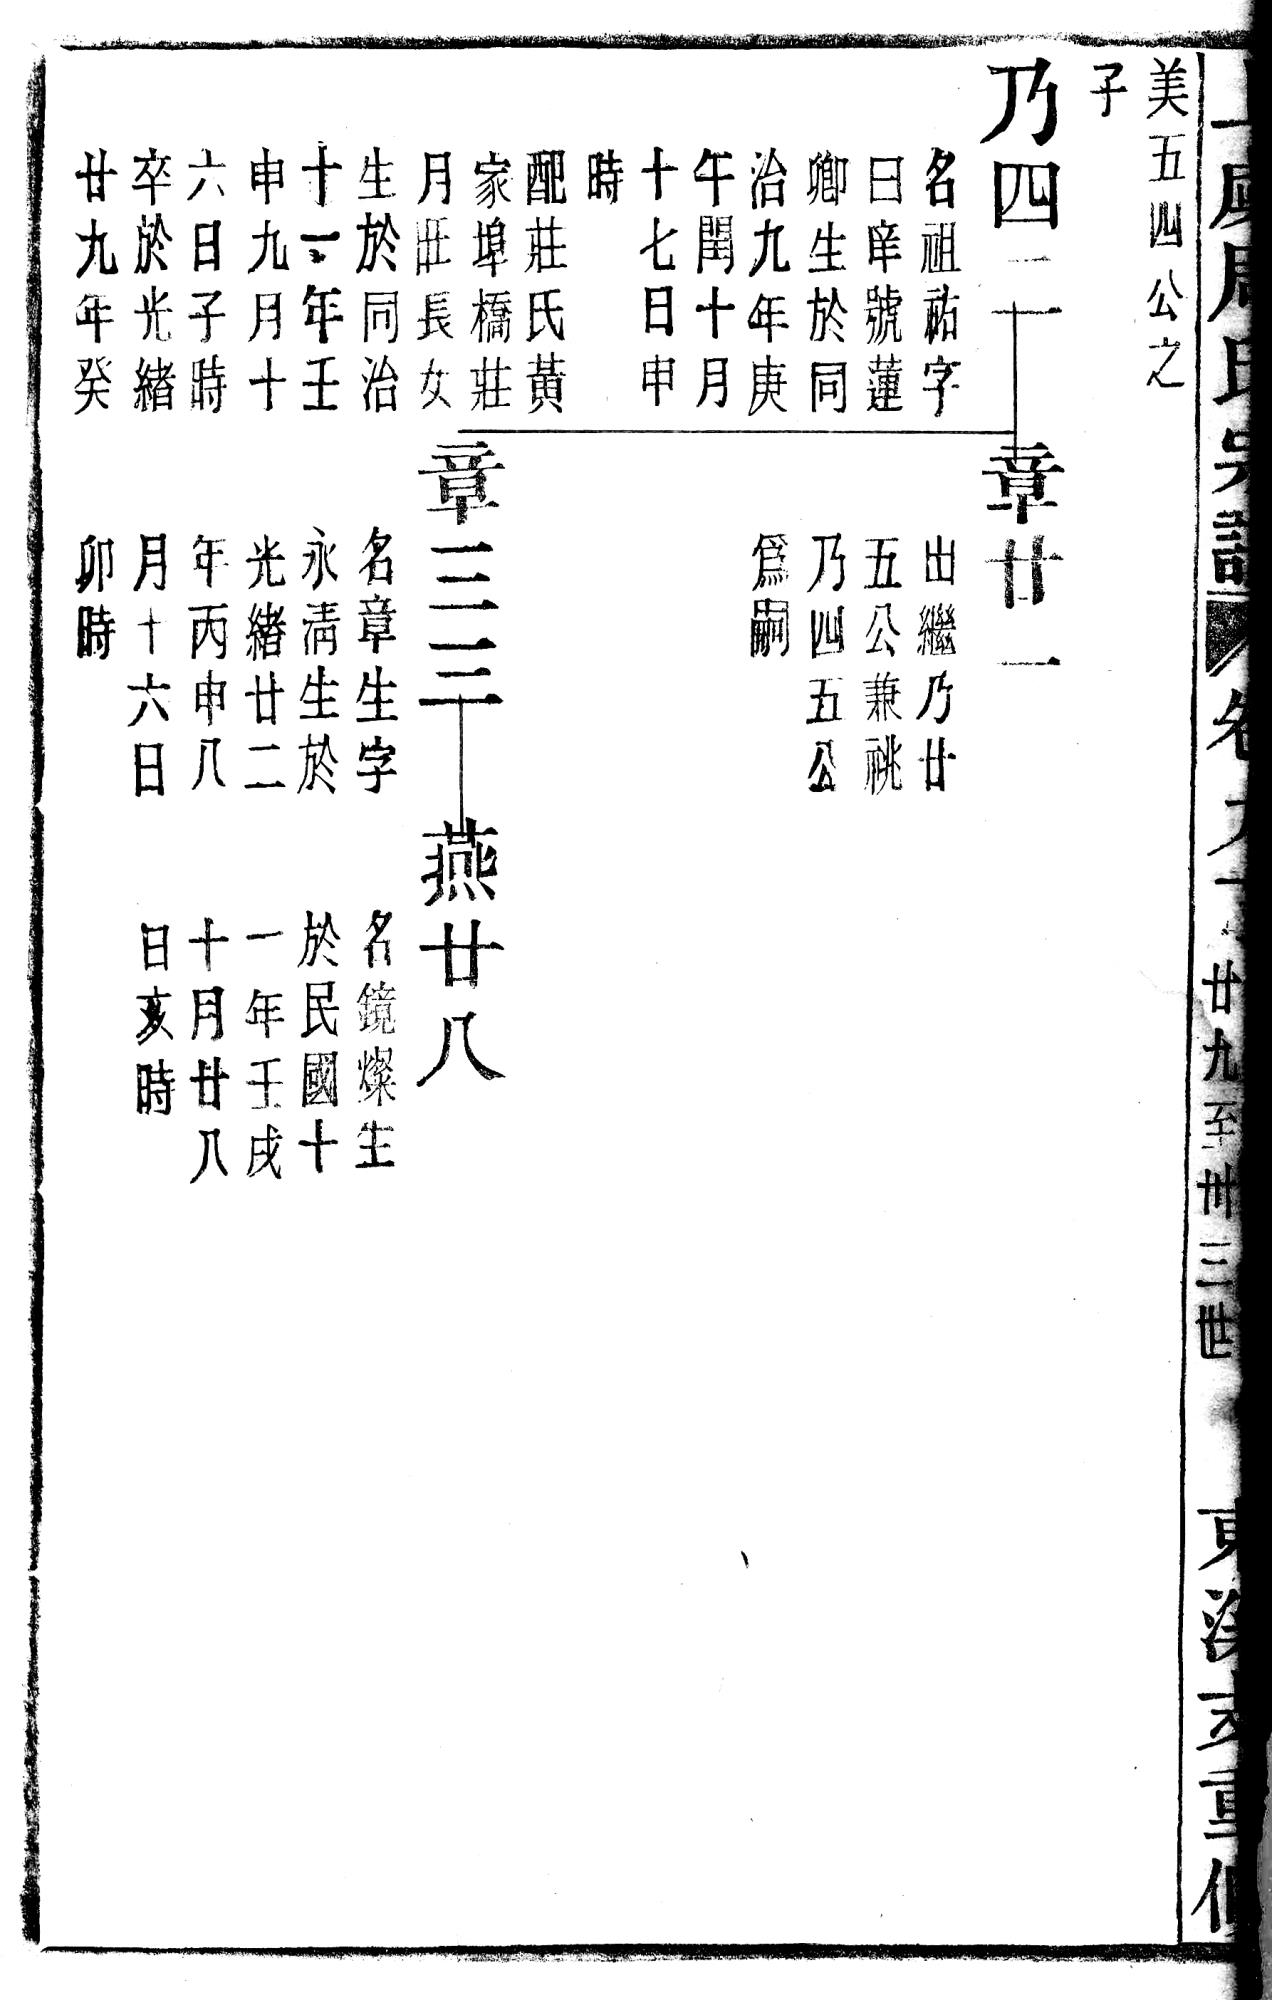 周氏宗譜 卷九 廿九至卅三世 東溪支重修
美五四公之
子
乃四二
名祖祐字
曰庠號蓮
卿生於同
治九年庚
午閏十月
十七日申
時
配莊氏黃
家埠橋莊
月旺長女
生於同治
十一年壬
申九月十
六日子時
卒於光緒
廿九年癸
章廿二
出繼乃廿
五公兼祧
乃四五公
爲嗣
章三三
名章生字
永清生於
光緒廿二
年丙申八
月十六日
卯時
燕廿八
名鏡燦生
於民國十
一年壬戌
十月廿八
日亥時